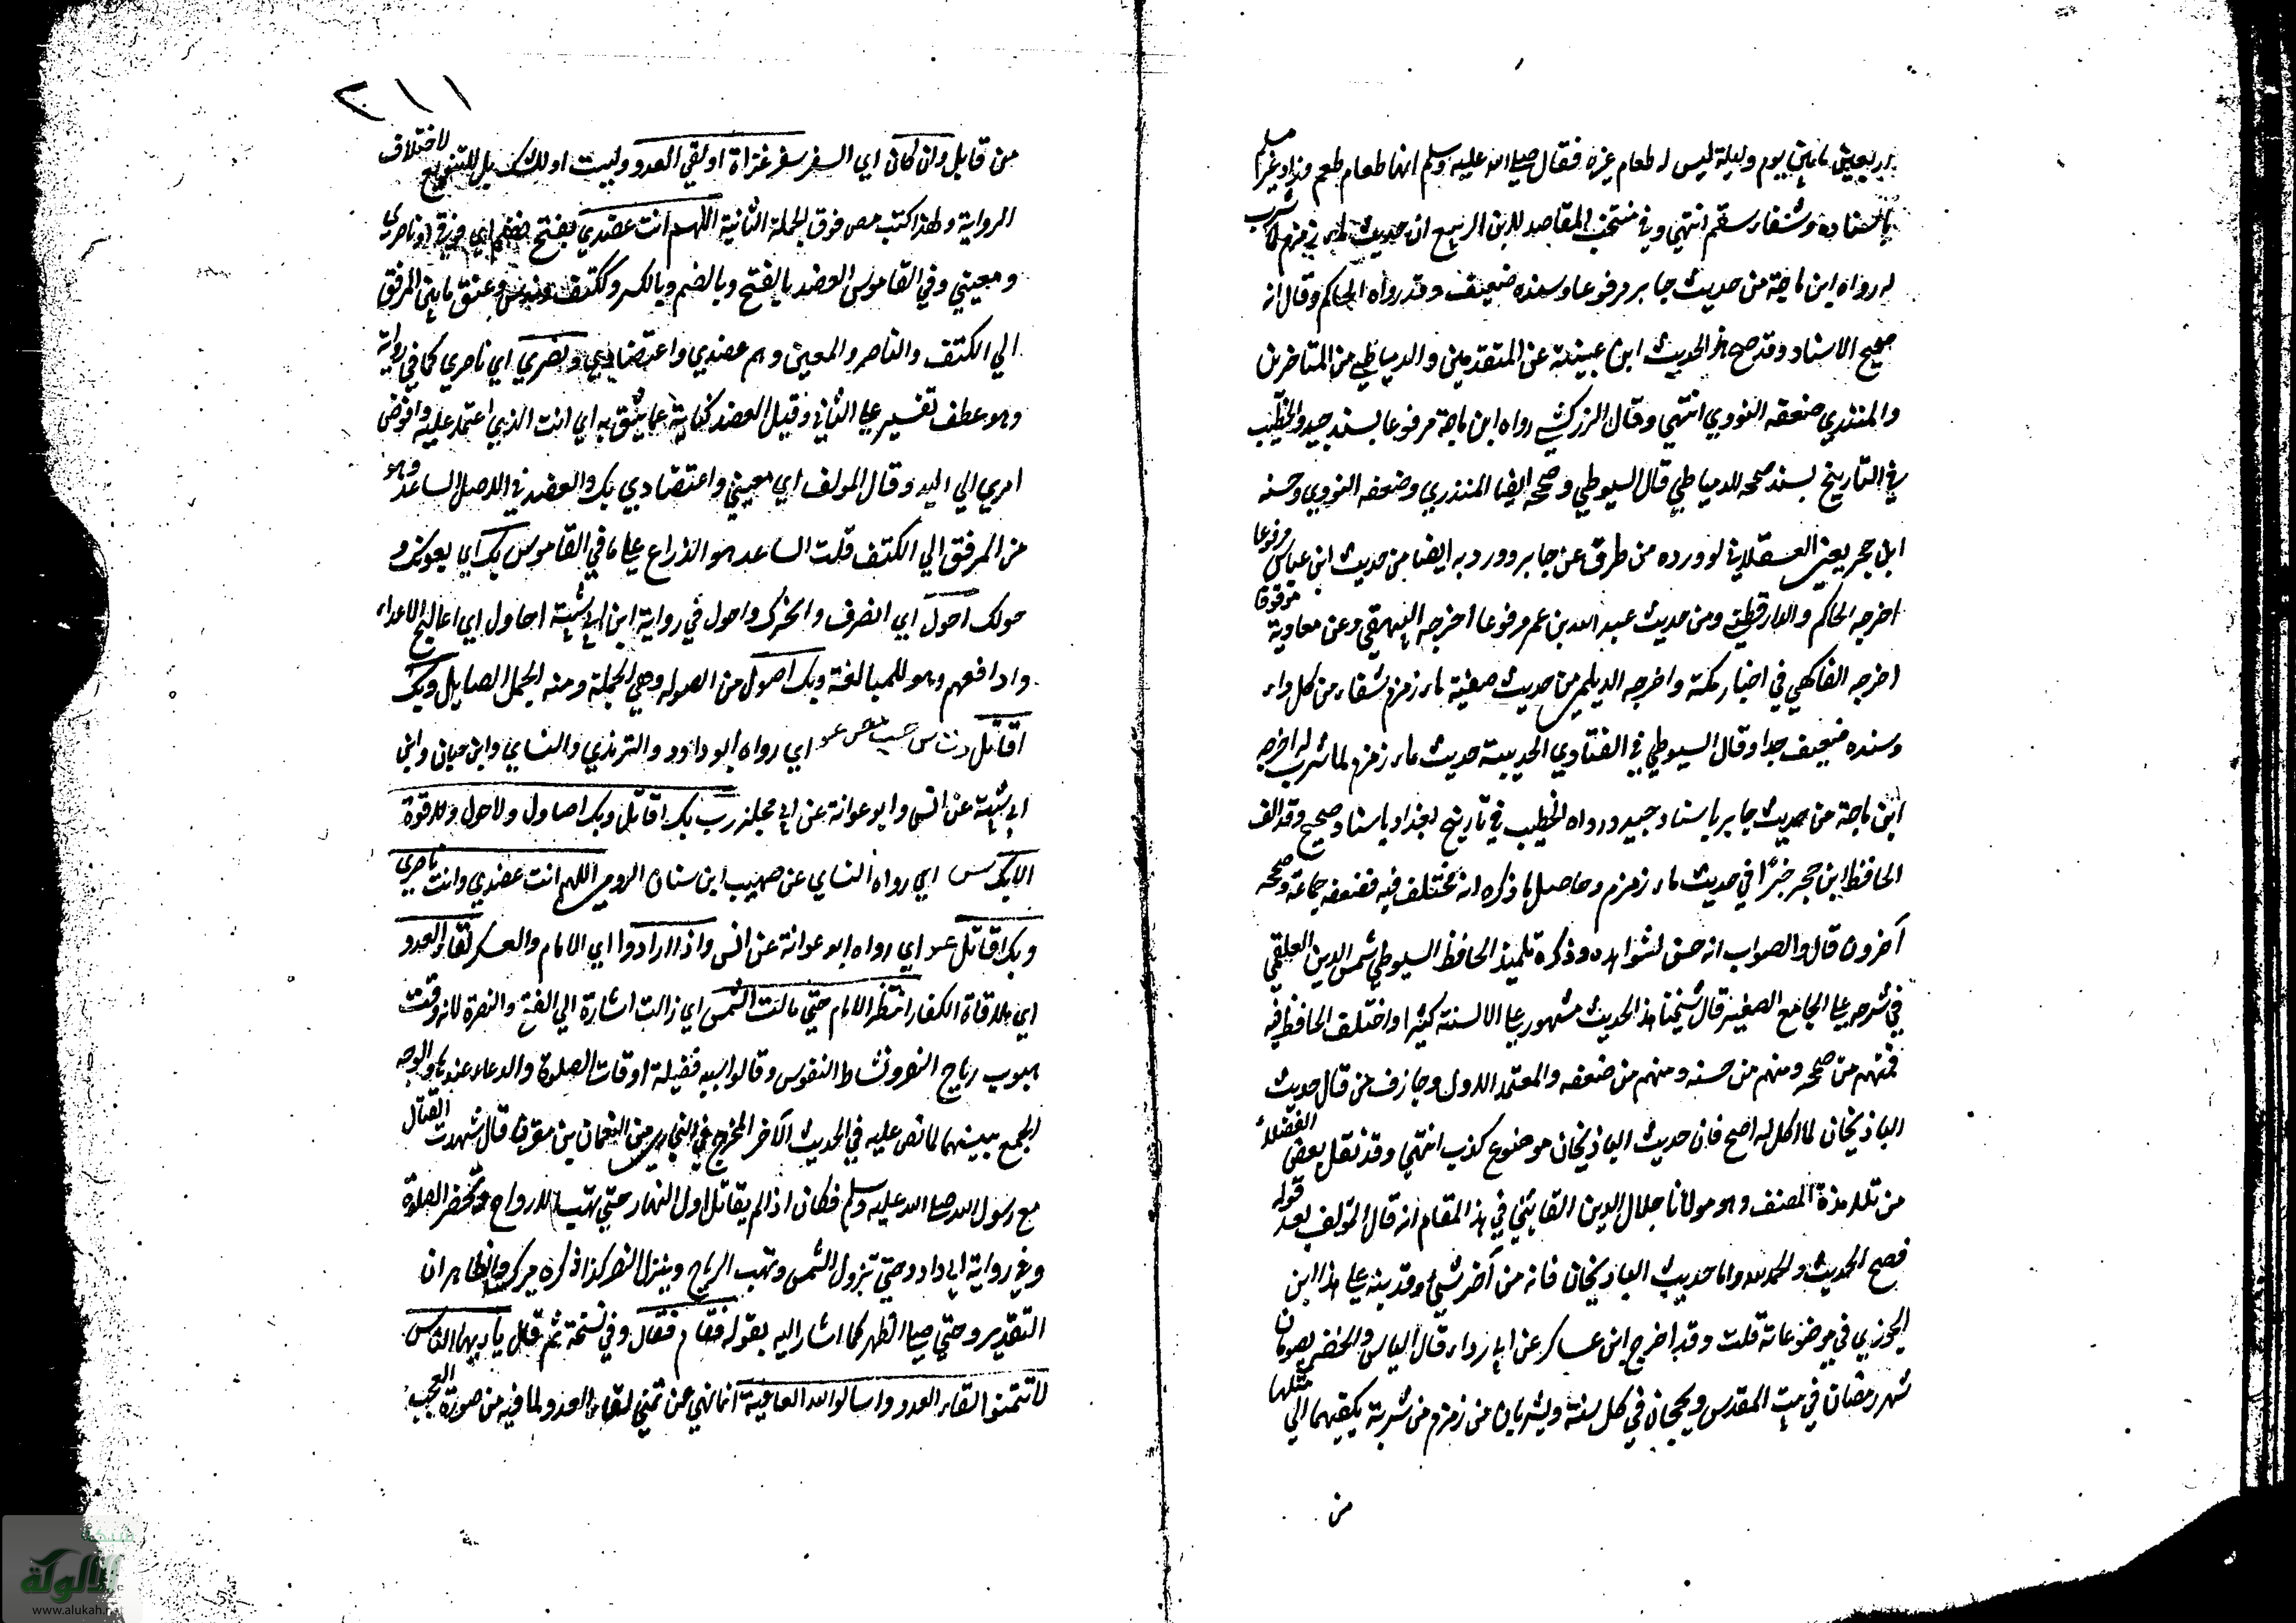 اربعين ما بين يوم وليلة ليس له طعام غيره فقال صلى الله عليه وسلم انها طعام طعم وزاد غير مسلم
باسناده وشفاء سقم انتهى وفي منتخب المقاصد لابن الربيع ان حديث ماء زمزم لما شرب
له رواه ابن ماجة من حديث جابر مرفوعا وسنده ضعيف وقد رواه الحاكم وقال انه
صحيح الاسناد وقد صحح هذا الحديث ابن عيينة عن المتقدمين والدمياطي من المتاخرين
والمنذري ضعفه النووي انتهى وقال الزركشي رواه ابن ماجة مرفوعا بسند جيد والخطيب
في التاريخ بسند صححه الدمياطي قال السيوطي وصححه ايضا المنذري وضعفه النووي وحسنه
ابن حجر يعني العسقلاني لوروده من طرق عن جابر وورد به ايضا من حديث ابن عباس مرفوعا
اخرجه الحاكم والدارقطني ومن حديث عبد الله بن عمر مرفوعا اخرجه البيهقي وعن معاوية موقوفا
اخرجه الفاكهي في اخبار مكة واخرجه الديلمي من حديث صفية ماء زمزم شفاء من كل داء
وسنده ضعيف جدا وقال السيوطي في الفتاوي الحديثية حديث ماء زمزم لما شرب له اخرجه
ابن ماجة من حديث جابر باسناد جيد ورواه الخطيب في تاريخ بغداد باسناد صحيح وقد الف
الحافظ ابن حجر جزءا في حديث ماء زمزم وحاصل ما ذكره انه مختلف فيه فضعفه جماعة وصححه
آخرون قال والصواب انه حسن لشواهده وذكره تلميذ الحافظ السيوطي شمس الدين العلقمي
في شرحه على الجامع الصغير قال شيخنا هذا الحديث مشهور على الالسنة كثيرا واختلف الحافظ فيه
فمنهم من صححه ومنهم من حسنه ومنهم من ضعفه والمعتمد الاول وجازف من قال حديث
الباذنجان لما اكل له اصح فان حديث الباذنجان موضوع كذب انتهى وقد نقل بعض الفضلاء
من تلامذة المصنف وهو مولانا جلال الدين القايني في هذا المقام انه قال المؤلف بعد قوله
فصح الحديث والحمد لله واما حديث الباذنجان فانه من آخر شيء وقد بينه على هذا ابن
الجوزي في موضوعاته قلت وقد اخرج ابن عساكر عن ابي رداء قال الياس والخضر يصومان
شهر رمضان في بيت المقدس ويحجان في كل سنة ويشربان من زمزم من شربة يكفيهما الى مثلها
من
٢١١
من قابل وان كان اي السفر سفر غزاة او لقي العدو وليست او للشك بل للتنويع لاختلاف
الرواية ولهذا كتب مص فوق الجملة الثانية اللهم انت عضدي بفتح فضم اي قوتي او ناصري
ومعيني وفي القاموس العضد بالفتح وبالضم وبالكسر وككتف وندس وعنق ما بين المرفق
الى الكتف والناصر والمعين وهم عضدي واعتضادي ونصري اي ناصري كما في رواية
وهو عطف تفسير على الثاني وقيل العضد كناية عما يثق به اي انت الذي اعتمد عليه وافوض
امري الى اليه وقال المؤلف اي معيني واعتضادي بك والعضد في الاصل الساعد وهو
من المرفق الى الكتف قلت الساعد هو الذراع على ما في القاموس بك اي بعونك و
حولك احول اي اتصرف واتحرك واحول في رواية ابن ابي شيبة احاول اي اعالج الاعداء
وادافعهم وهو للمبالغة وبك اصول من الصولة وهي الحملة ومنه الجمل الصايل وبك
اقاتل د ت س حب مص عو اي رواه ابو داود والترمذي والنساي وابن حبان وابن
ابي شيبة عن انس وابو عوانة عن ابي مجلز رب بك اقاتل وبك اصاول ولا حول ولا قوة
الا بك س اي رواه النساي عن صهيب ابن سنان الرومي اللهم انت عضدي وانت ناصري
وبك اقاتل عو اي رواه ابو عوانة عن انس واذا ارادوا اي الامام والعسكر لقاء العدو
اي ملاقاة الكفار انتظر الامام حتى مالت الشمس اي زالت اشارة الى الفتح والنصرة لانه وقت
هبوب رياح النصر ونشاط النفوس وقالوا سببه فضيلة اوقات الصلوة والدعاء عندها والوجه
الجمع بينهما لما نص عليه في الحديث الآخر المخرج في البخاري من النعمان بن مقرن قال شهدت القتال
مع رسول الله صلى الله عليه وسلم فكان اذا لم يقاتل اول النهار حتى تهب الارواح وتحضر الصلوة
وفي رواية ابي داود حتى تزول الشمس وتهب الرياح وينزل النصر كذا ذكره ميرك والظاهر ان
التقدير وحتى صلى الظهر كما اشار اليه بقوله فقام فقال وفي نسخة ثم قال يا ايها الناس
لا تتمنوا لقاء العدو واسالوا الله العافية انما نهى عن تمني لقاء العدو لما فيه من صورة العجب
شبكة
الألوكة
www.alukah.net